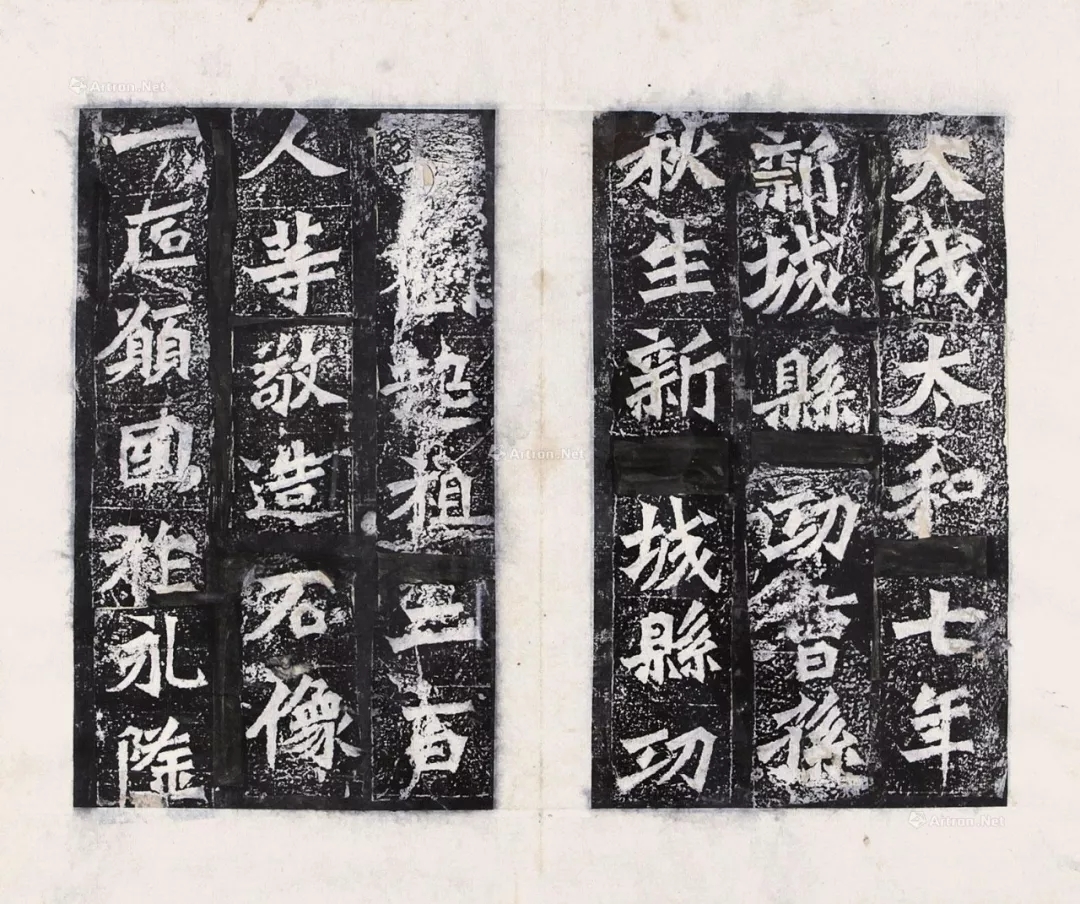 大伐太和七年
新城縣功曹孫
秋生新城縣功
劉起祖二百
人等敬造石像
一區願國祚永隆
Artron.Net
Artron.Net
Artron.Net